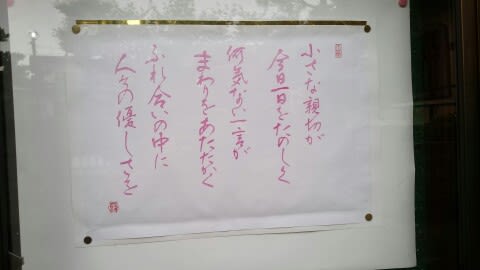 小さな親切が
今日一日をたのしく
何気ない一言が
まわりをあたたかく
ふれ合いの中に
人々の優しさを